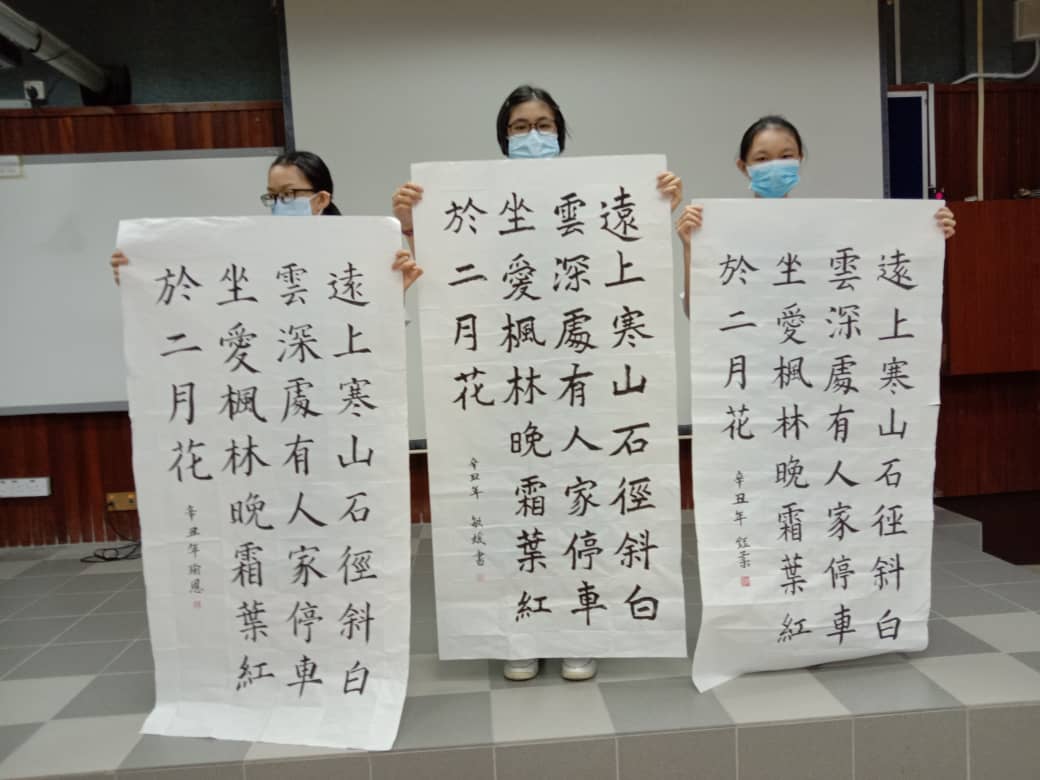 遠上寒山石徑斜白
雲深處有人家停車
坐愛楓林晚霜葉紅
於二月花
辛丑年瑜恩
遠上寒山石徑斜白
雲深處有人家停車
坐愛楓林晚霜葉紅
於二月花
辛丑年 敏媛書
遠上寒山石徑斜白
雲深處有人家停車
坐愛楓林晚霜葉紅
於二月花
辛丑年